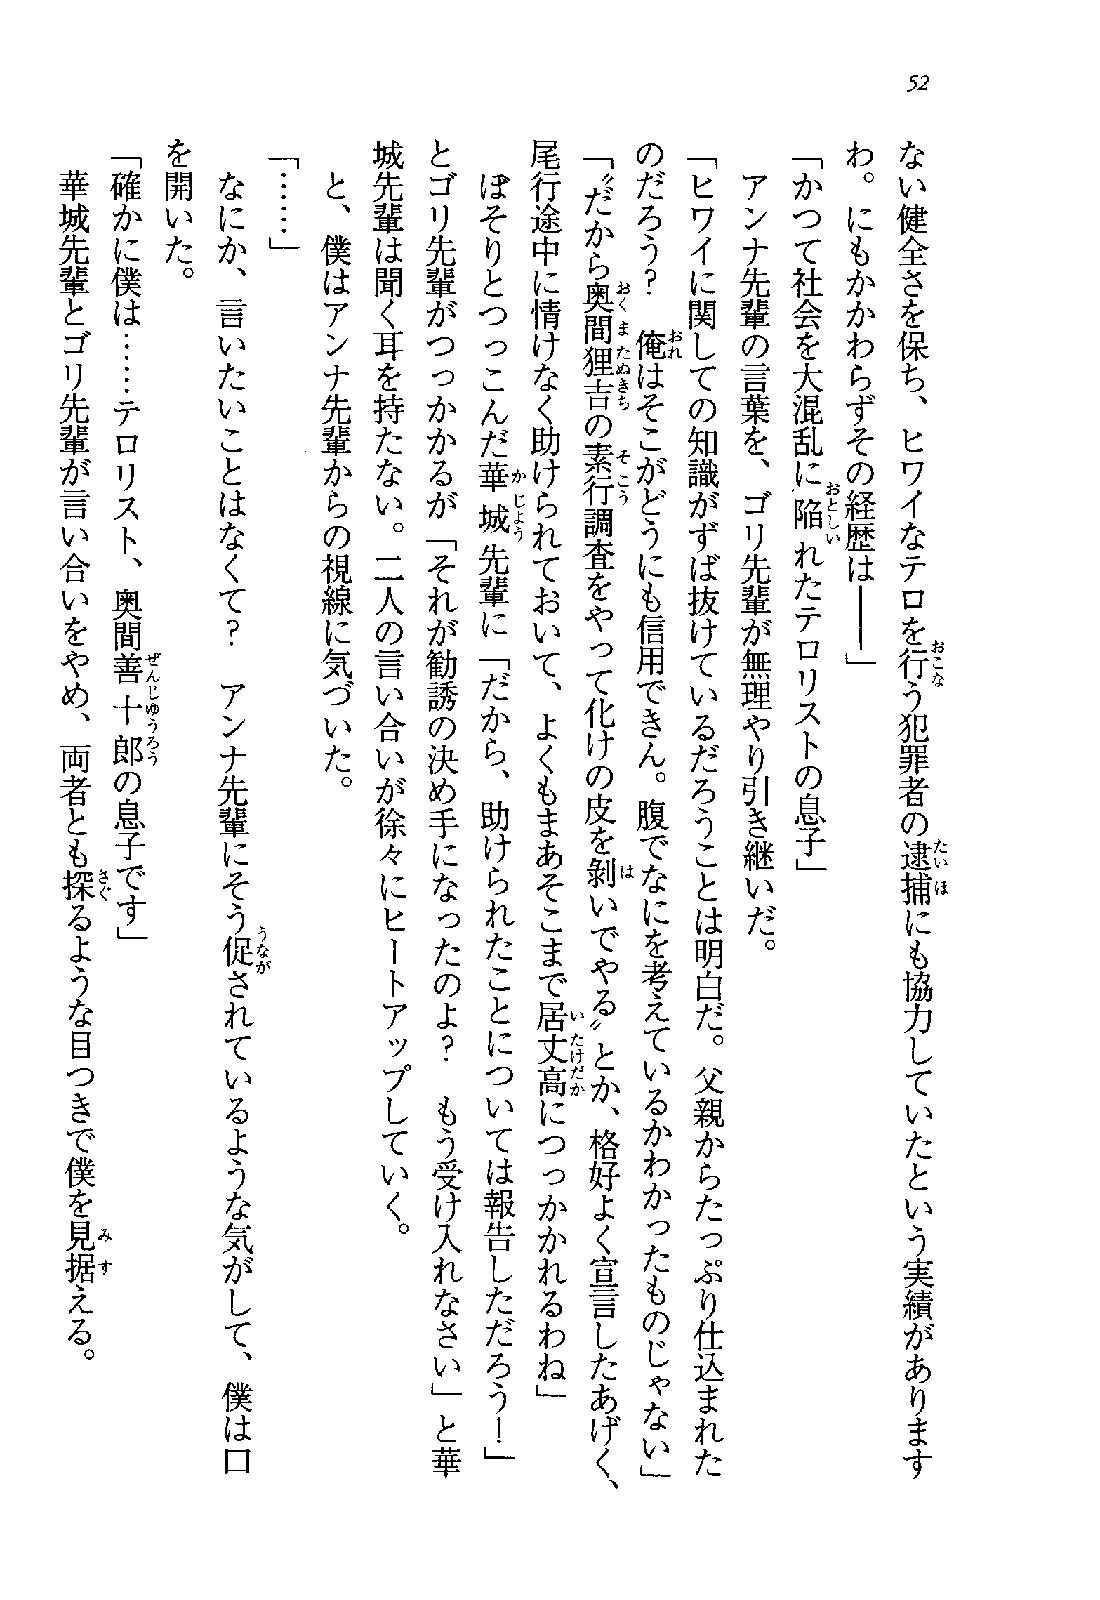 52
ない健全さを保ち、ヒワイなテロを行う犯罪者の逮捕にも協力していたという実績があります
わ。にもかかわらずその経歴は――」
「かつて社会を大混乱に陥れたテロリストの息子」
アンナ先輩の言葉を、ゴリ先輩が無理やり引き継いだ。
「ヒワイに関しての知識がずば抜けているだろうことは明白だ。父親からたっぷり仕込まれた
のだろう?　俺はそこがどうにも信用できん。腹でなにを考えているかわかったものじゃない」
「〝だから奥間狸吉の素行調査をやって化けの皮を剝いでやる〟とか、格好よく宣言したあげく、
尾行途中に情けなく助けられておいて、よくもまあそこまで居丈高につっかかれるわね」
ぼそりとつっこんだ華城先輩に「だから、助けられたことについては報告しただろう!」
とゴリ先輩がつっかかるが「それが勧誘の決め手になったのよ?　もう受け入れなさい」と華
城先輩は聞く耳を持たない。二人の言い合いが徐々にヒートアップしていく。
と、僕はアンナ先輩からの視線に気づいた。
「……」
なにか、言いたいことはなくて?　アンナ先輩にそう促されているような気がして、僕は口
を開いた。
「確かに僕は……テロリスト、奥間善十郎の息子です」
華城先輩とゴリ先輩が言い合いをやめ、両者とも探るような目つきで僕を見据える。